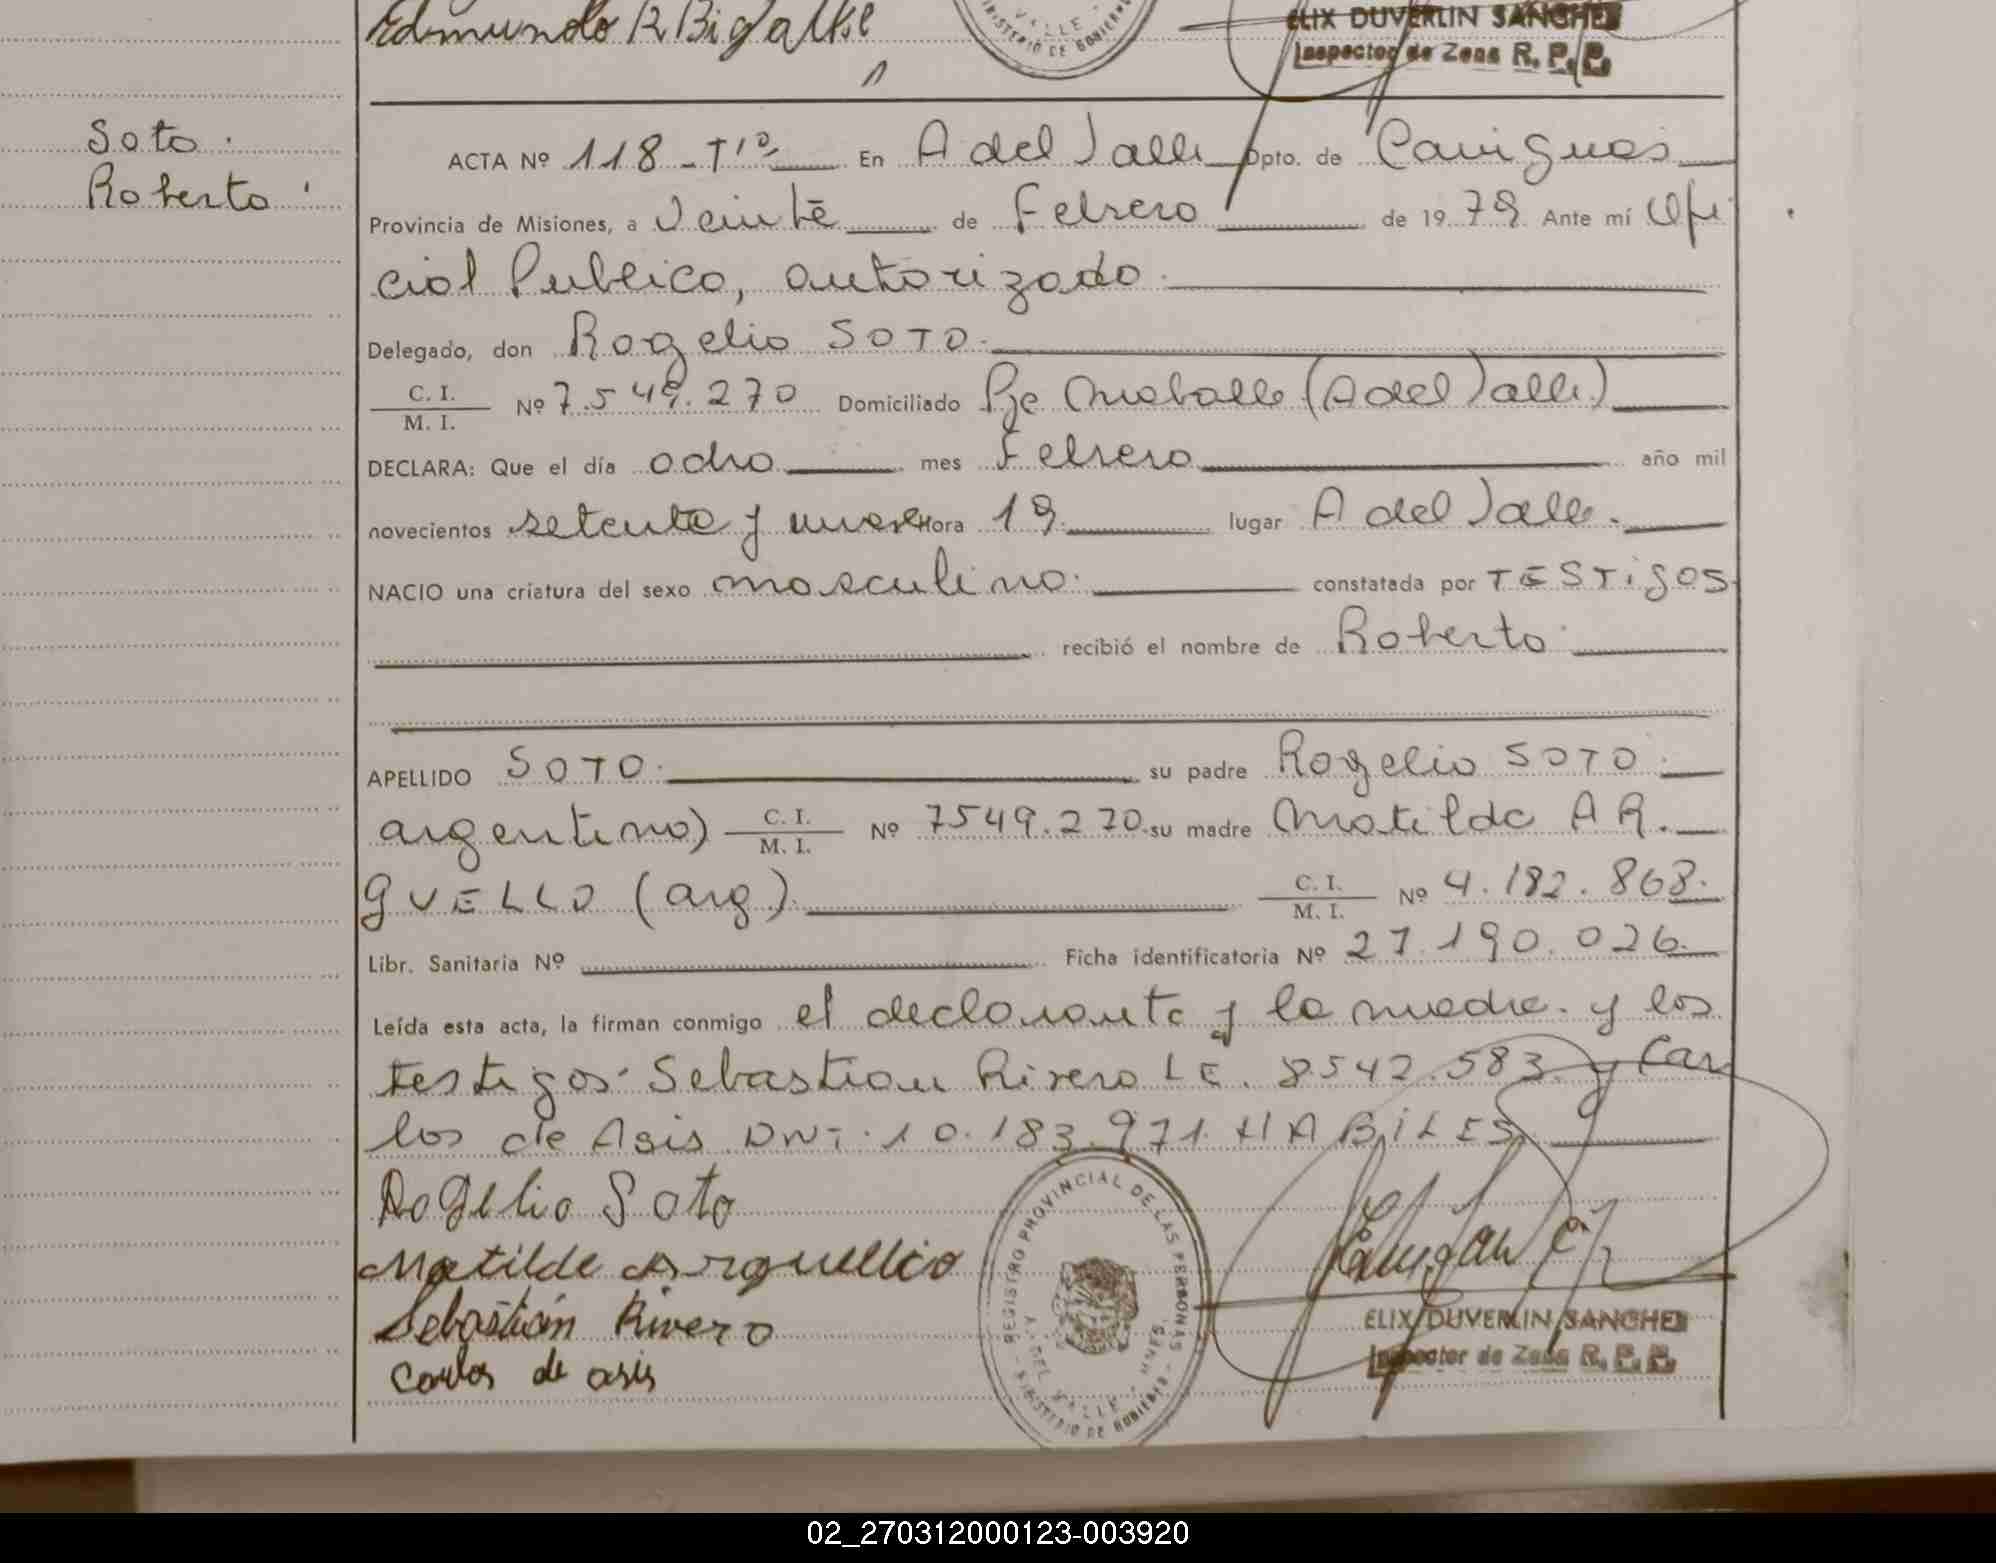 Edmundo R Bigalke
ELIX DUVERLIN SANCHEZ
Inspector de Zona R. P. P.
Soto
Roberto
ACTA Nº 118 - Tº En A del Valle Dpto. de Cainguas
Provincia de Misiones, a Veinte de Febrero de 1979 Ante mí Ofi
cial Publico, autorizado
Delegado, don Rogelio SOTO.
C. I. / M. I. Nº 7.549.270 Domiciliado Pje (A del Valle)
DECLARA: Que el día ocho mes Febrero año mil
novecientos setenta y nueve Hora 19 lugar A del Valle.
NACIO una criatura del sexo masculino. constatada por TESTigos
recibió el nombre de Roberto
APELLIDO SOTO. su padre Rogelio SOTO
argentino) C. I. / M. I. Nº 7549.270 su madre Matilde AR.
gUELLO (arg). C. I. / M. I. Nº 4.182.868.
Libr. Sanitaria Nº Ficha identificatoria Nº 27.190.026.
Leída esta acta, la firman conmigo el declarante y la madre. y los
testigos Sebastian Rivero LE. 8542.583. y Car
los de Asis DNI. 10.183.971. HABILES
Rogelio Soto
Matilde Arguello
Sebastián Rivero
Carlos de asis
REGISTRO PROVINCIAL DE LAS PERSONAS
A. DEL VALLE - MNES.
MINISTERIO DE GOBIERNO
ELIX DUVERLIN SANCHEZ
Inspector de Zona R. P. P.
02_270312000123-003920